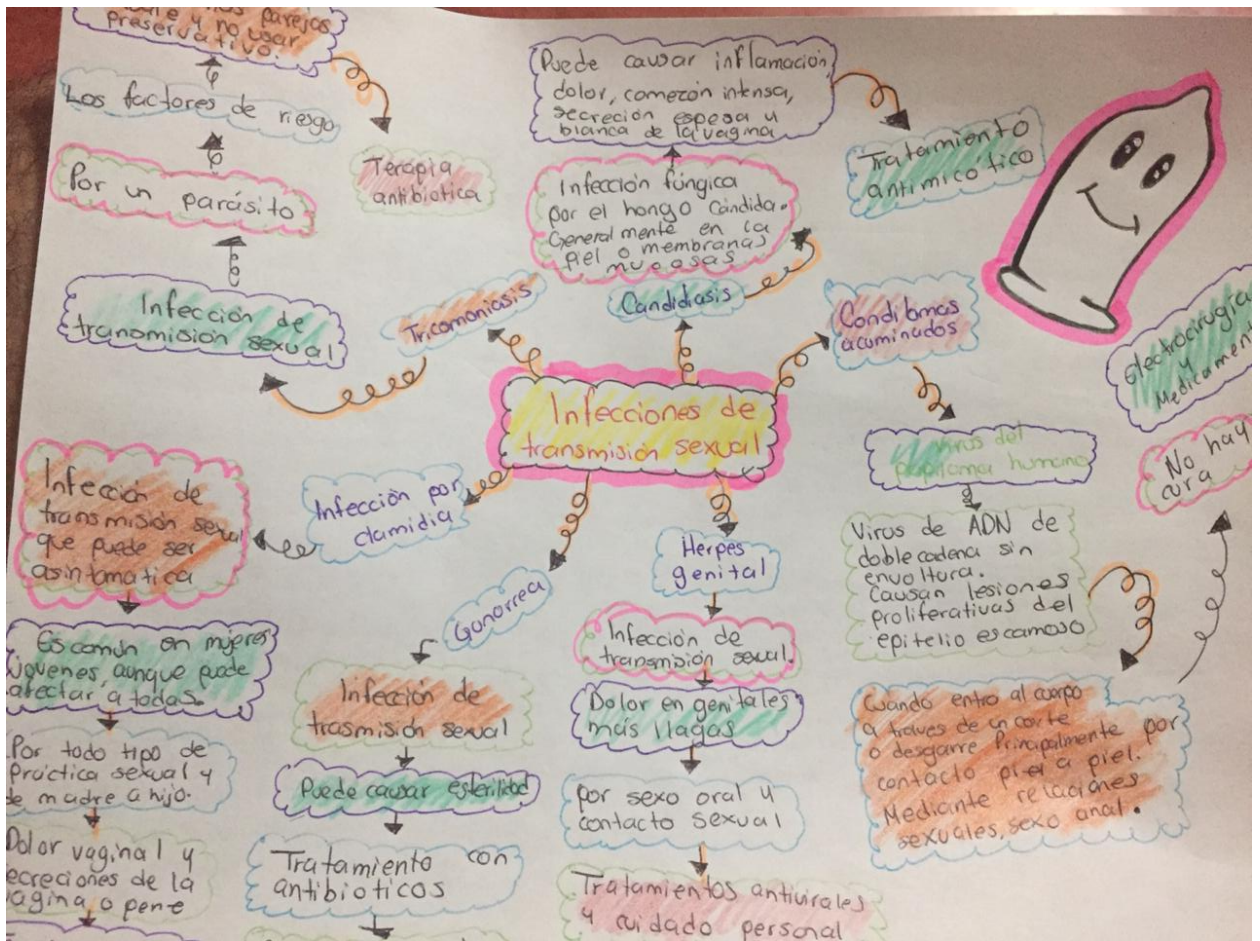 parejas
y no usar
preservativo.
Los factores de riesgo
Por un parásito
Terapia
antibiotica
Infección de
transmisión sexual
Tricomoniasis
Puede causar inflamación,
dolor, comezón intensa,
secreción espesa y
blanca de la vagina
Infección fúngica
por el hongo Cándida.
Generalmente en la
piel o membranas
mucosas
Candidiasis
Tratamiento
antimicótico
Condilomas
acuminados
Electrocirugía
y
Medicament
No hay
cura
Infecciones de
transmisión sexual
Virus del
papiloma humano
Virus de ADN de
doble cadena sin
envoltura.
Causan lesiones
proliferativas del
epitelio escamoso
Cuando entro al cuerpo
a traves de un corte
o desgarre Principalmente por
contacto piel a piel.
Mediante relaciones
sexuales, sexo anal.
Infección por
clamidia
Infección de
transmisión sexual
que puede ser
asintomática
Es común en mujeres
jóvenes, aunque puede
afectar a todas.
Por todo tipo de
práctica sexual y
de madre a hijo.
Dolor vaginal y
ecreciones de la
vagina o pene
Gonorrea
Infección de
trasmisión sexual
Puede causar esterilidad
Tratamiento con
antibioticos
Herpes
genital
Infección de
transmisión sexual.
Dolor en genitales
más llagas
por sexo oral y
contacto sexual
Tratamientos antivirales
y cuidado personal